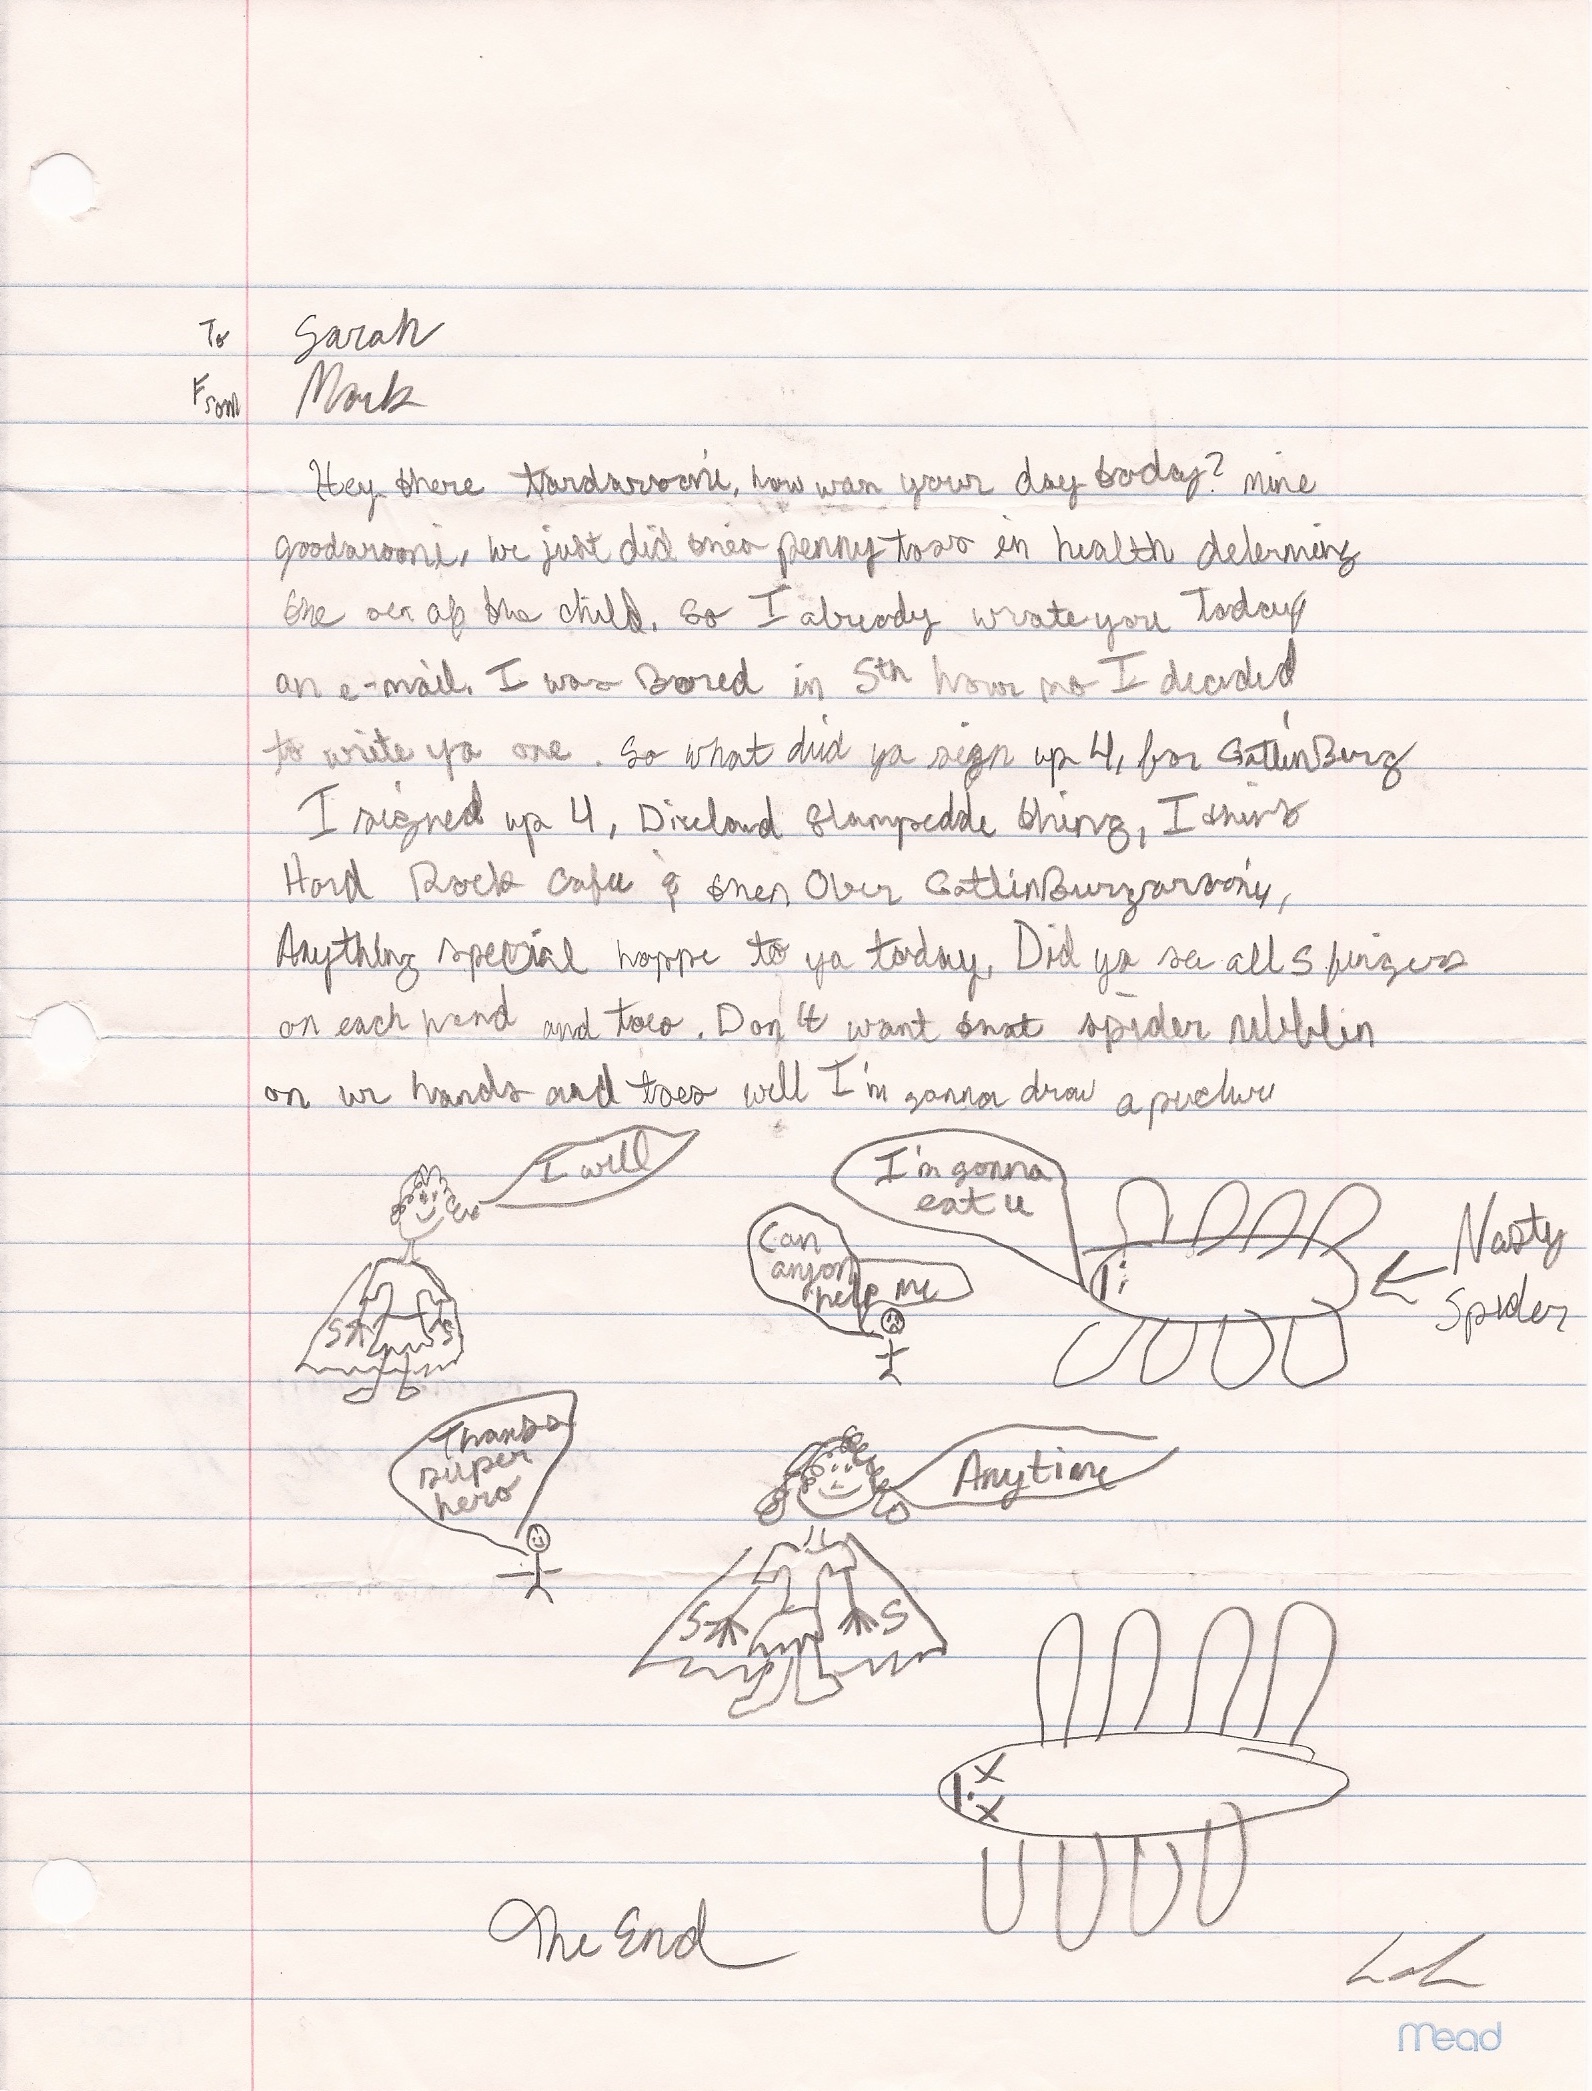 To Sarah
From Mark
Hey there tardarooni, how was your day today? mine
goodarooni, we just did this penny toss in health determing
the sex of the child. So I already wrote you Today
an e-mail. I was Bored in 5th hour so I decided
to write ya one. So what did ya sign up 4, for GatlinBurg
I signed up 4, Dixeland Stampedde thing, I think
Hard Rock Cafe & then Over GatlinBurgarooni,
Anything special happe to ya today. Did ya see all 5 fingers
on each hand and toes. Don't want that spider nibblin
on ur hands and toes well I'm gonna draw a picture
I will
I'm gonna
eat u
Can
anyon
help me
Nasty
Spider
S
S
Thanks
super
hero
Anytime
S
S
The End
Mead